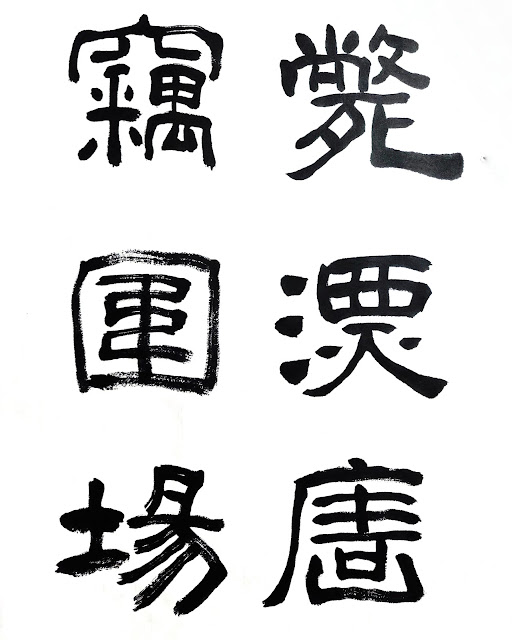 斃漂唐
竊圍場